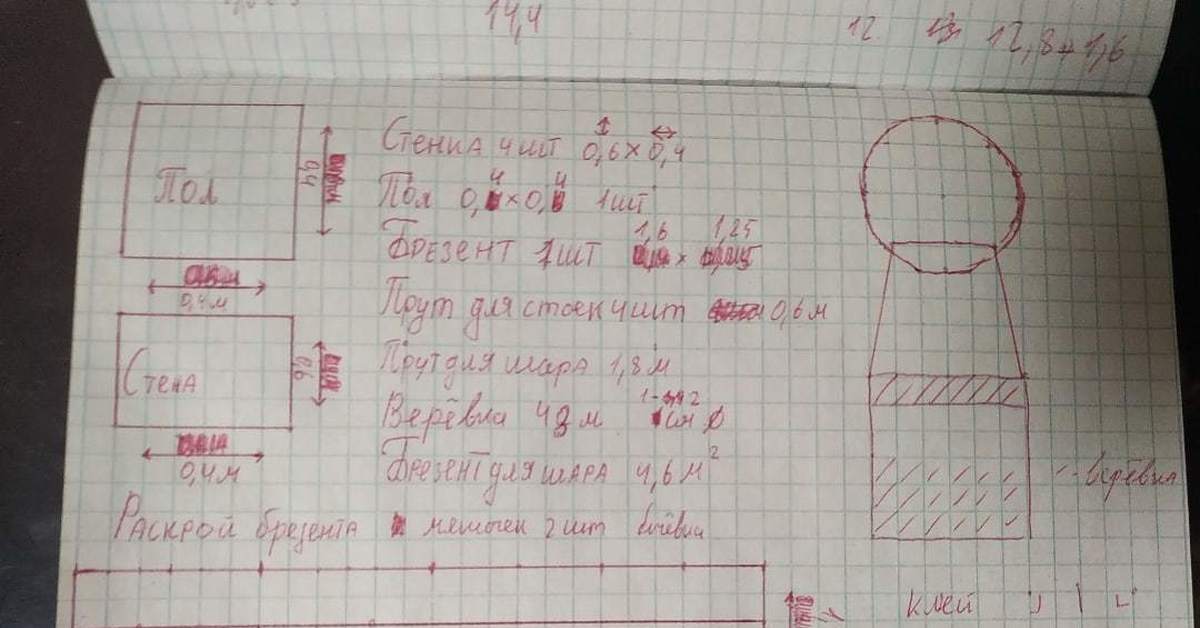 14,4
12 12,8+1,6
Пол
0,4
0,4м
Стенка 4шт 0,6×0,4
Пол 0,4×0,4 1шт
Брезент 1шт 1,6 × 1,25
Прут для стоек 4шт 0,6м
Стена
0,6
0,4м
Прут для шара 1,8м
Верёвка 43м 1-2 см
Брезент для шара 4,6м²
Верёвка
Раскрой брезента мешочек 2шт бичёвка
1
Клей